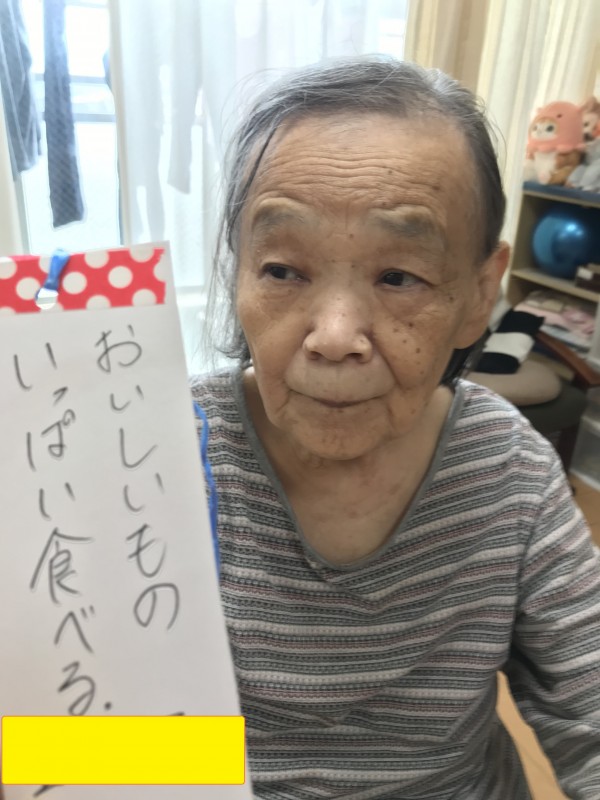 おいしいもの
いっぱい食べる。